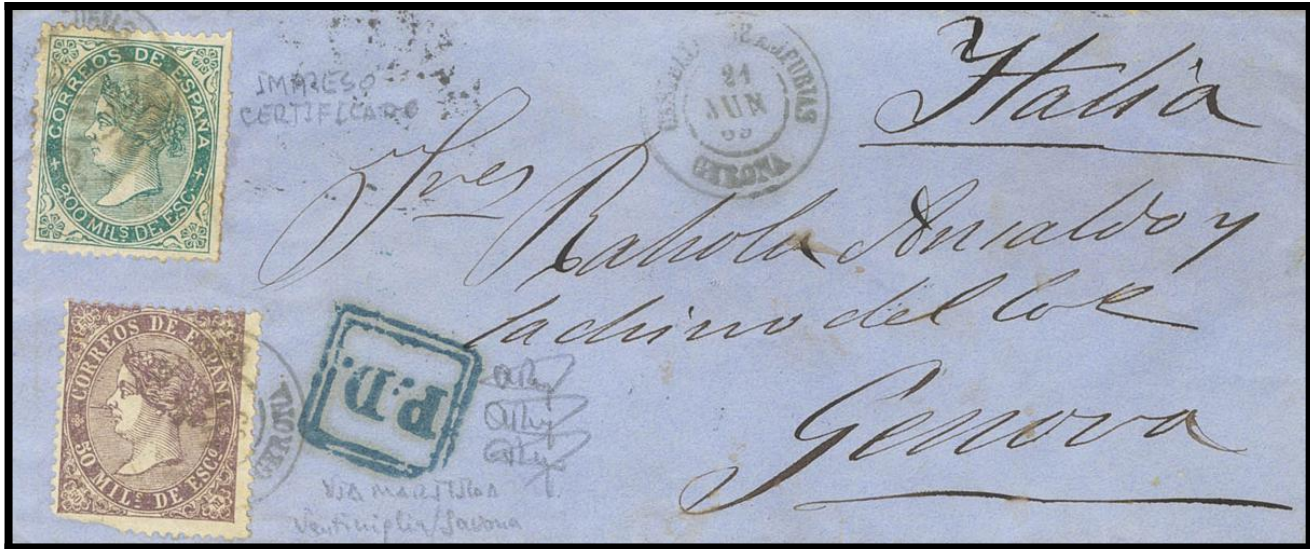 CORREOS DE ESPAÑA
200 MILS DE ESC.
IMPRESO
CERTIFICADO
21
JUN
69
GERONA
Italia
Sres Rahola Ansaldo y
del
Genova
CORREOS DE ESPAÑA
50 MILS DE ESCO
GERONA
P.D.
VIA MARITIMA
Ventimiglia/Savona